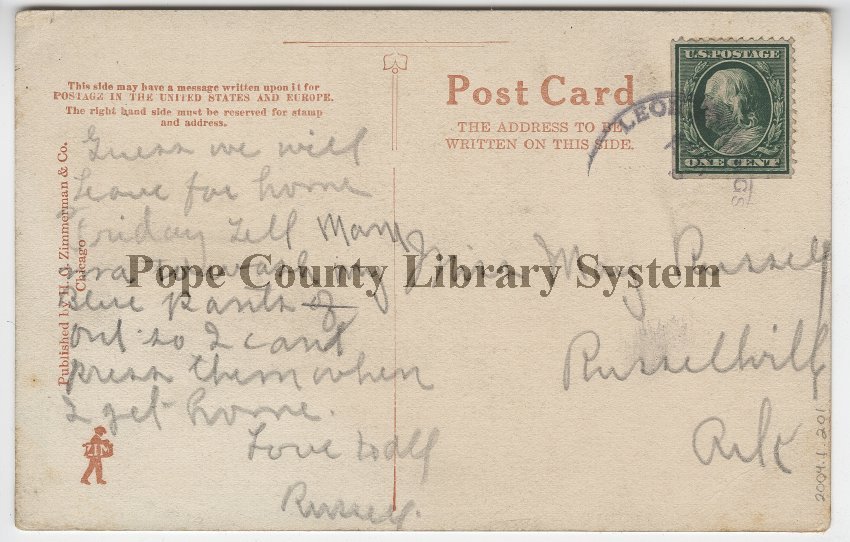 This side may have a message written upon it for
POSTAGE IN THE UNITED STATES AND EUROPE.
The right hand side must be reserved for stamp
and address.
Published by H. G. Zimmerman & Co.
Chicago
ZIM
Guess we will
leave for home
Friday Tell Mam
wash my
blue pants
out so I can
press them when
I get home.
Love to all
Russell.
Post Card
THE ADDRESS TO BE
WRITTEN ON THIS SIDE.
U.S. POSTAGE
ONE CENT
LEO
GS
Miss Russell
Russellvill
Ark
2004.1.201
Pope County Library System